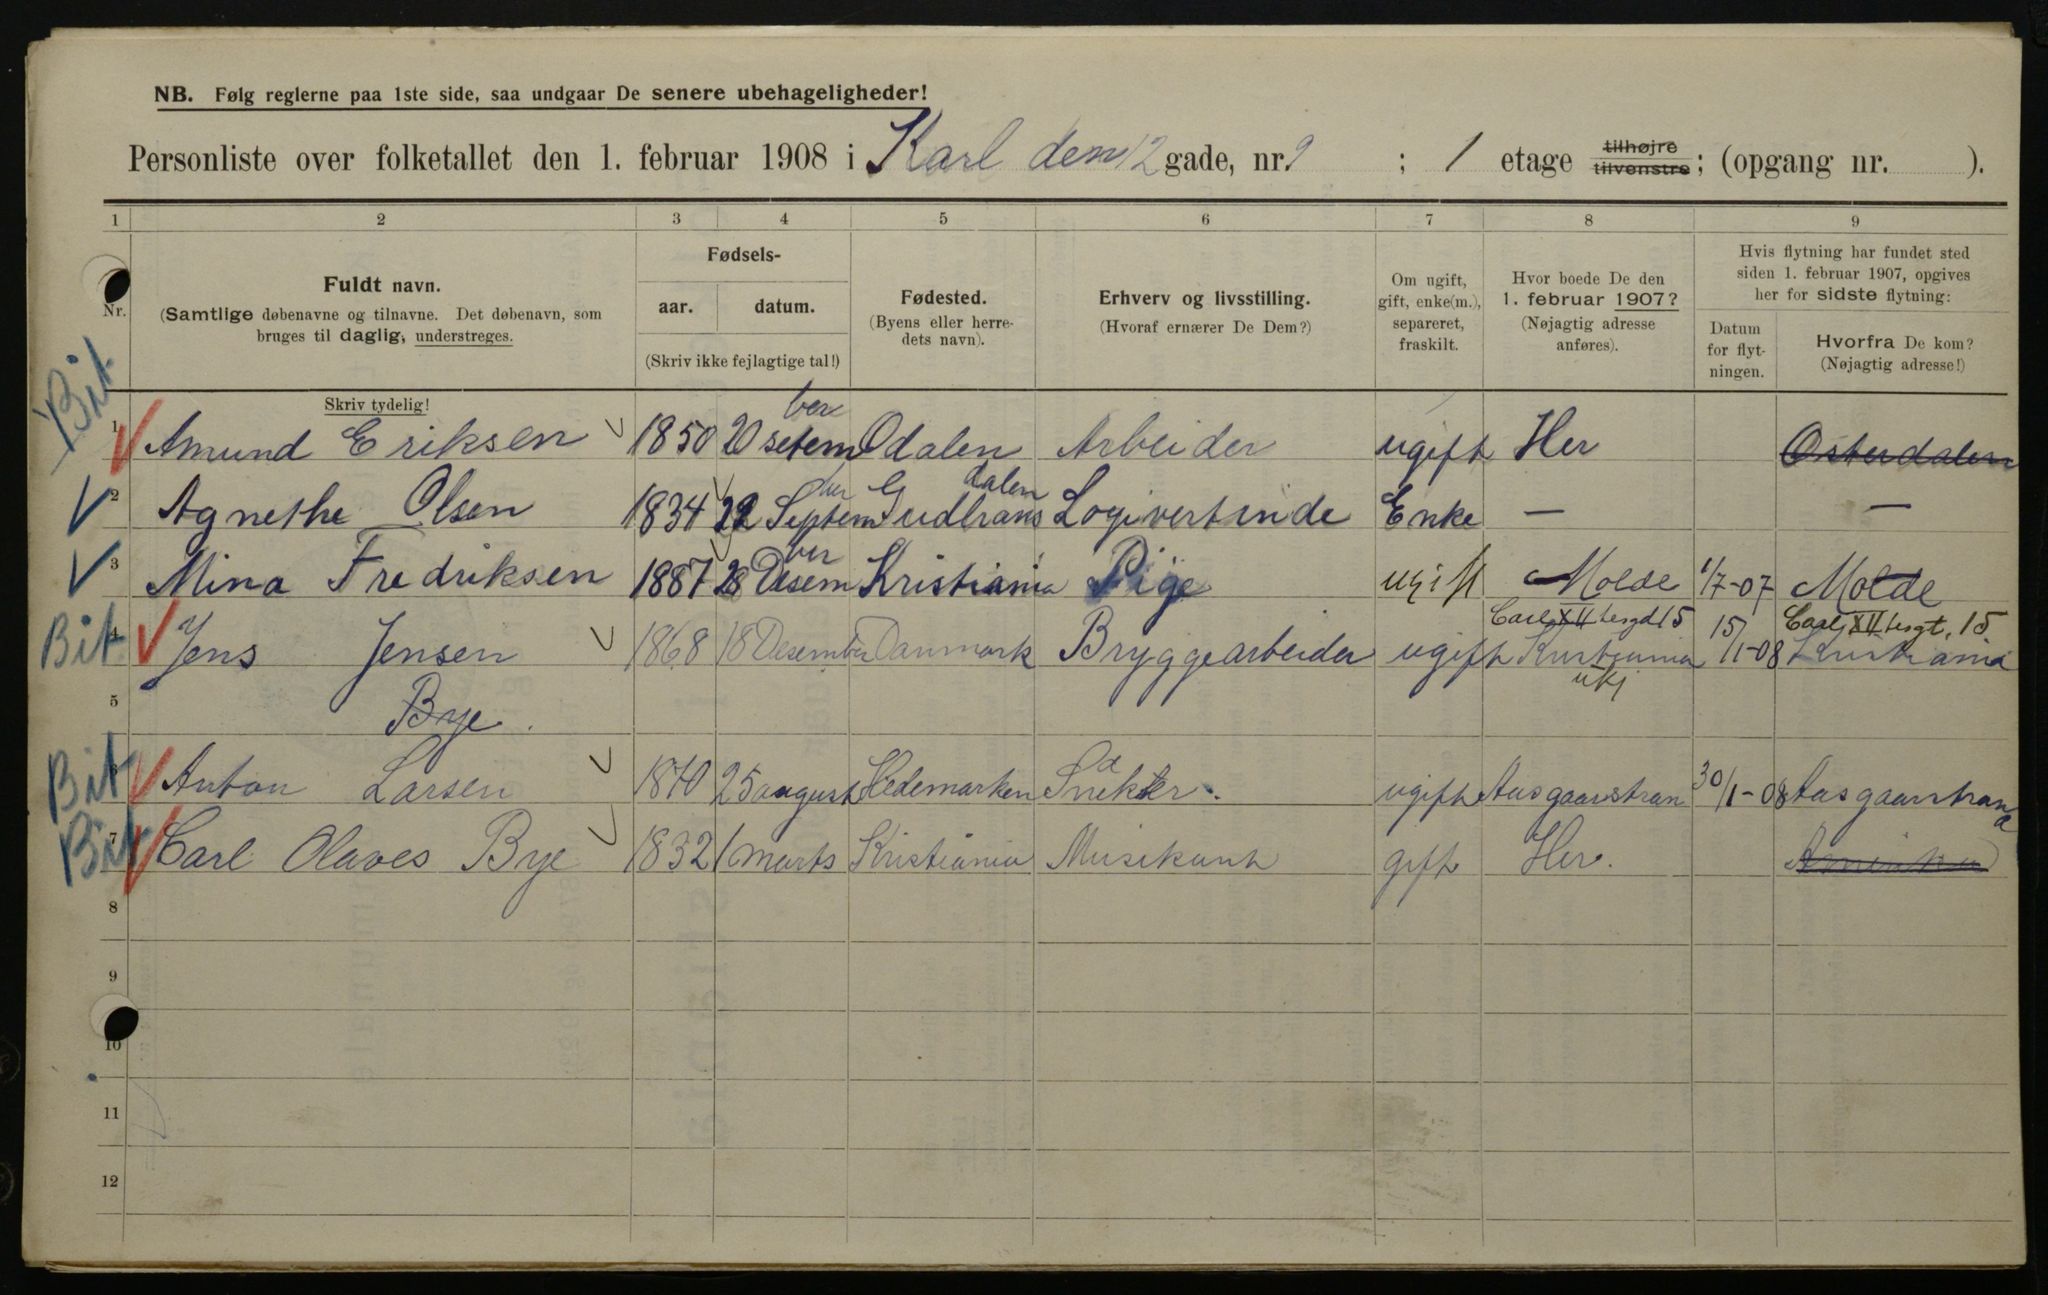 NB. Følg reglerne paa 1ste side, saa undgaar De senere ubehageligheder!
Personliste over folketallet den 1. februar 1908 i Karl dem 12 gade, nr. 9 ; 1 etage tilhøjre tilvenstre; (opgang nr. ).
1 2 3 4 5 6 7 8 9
Nr.
Fuldt navn.
(Samtlige døbenavne og tilnavne. Det døbenavn, som
bruges til daglig, understreges.
Fødsels-
aar. datum.
(Skriv ikke fejlagtige tal!)
Fødested.
(Byens eller herre-
dets navn).
Erhverv og livsstilling.
(Hvoraf ernærer De Dem?)
Om ugift,
gift, enke(m.),
separeret,
fraskilt.
Hvor boede De den
1. februar 1907?
(Nøjagtig adresse
anføres).
Hvis flytning har fundet sted
siden 1. februar 1907, opgives
her for sidste flytning:
Datum
for flyt-
ningen.
Hvorfra De kom?
(Nøjagtig adresse!)
Skriv tydelig!
Bit 1 Amund Eriksen 1850 20 setember Odalen Arbeider ugift Her Østerdalen
2 Agnethe Olsen 1834 22 September Gudbransdalen Logivertinde Enke — —
3 Mina Fredriksen 1887 28 Desember Kristiania Pige ugift Molde 1/7-07 Molde
Carl XII tesgd 15 Carl XII tesgt. 15
Bit 4 Jens Jensen 1868 18 Desember Danmark Bryggearbeider ugift Kristiania 15/1-08 Kristiania
ukj
5 Bye.
Bit 6 Anton Larsen 1870 25 august Hedemarken Snekker. ugift Aasgaarstran 30/1-08 Aasgaarstrand
Bit 7 Carl Olaves Bye 1832 1 marts Kristiania Musikant gift Her. Amerika
8
9
10
11
12